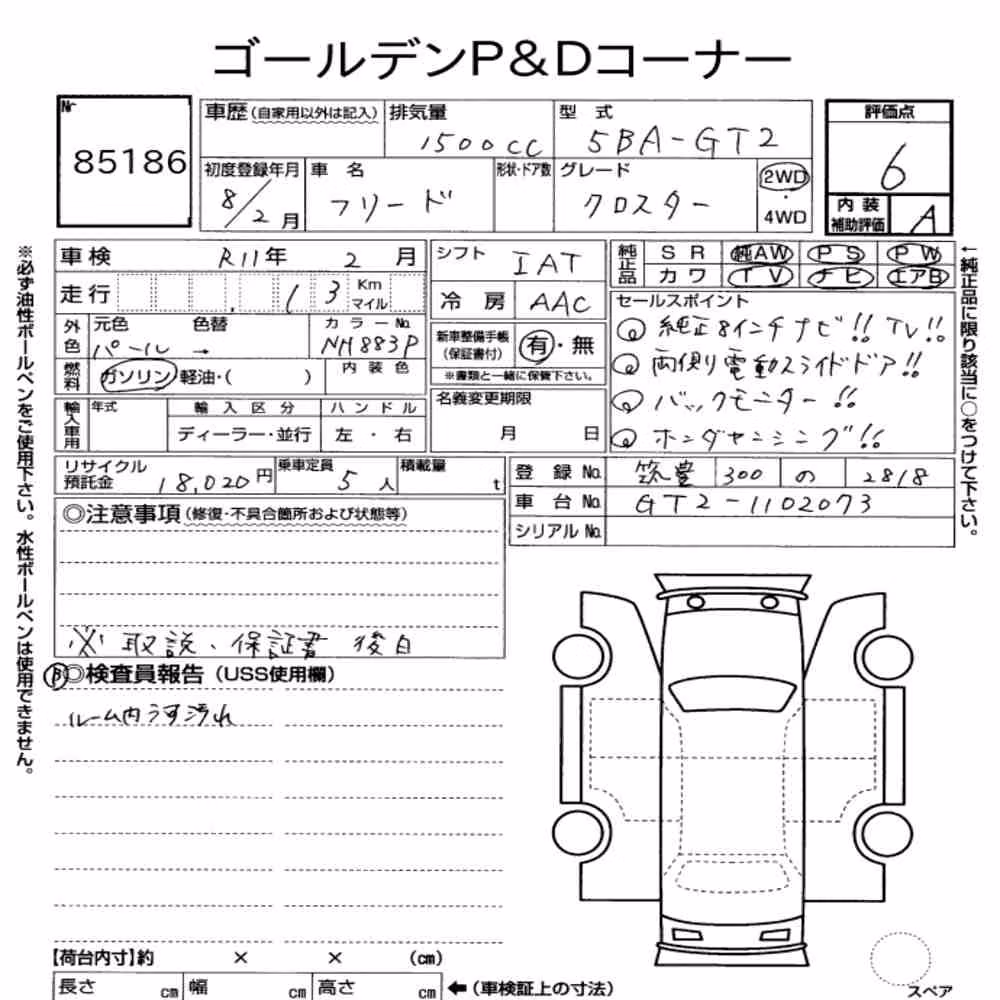 ゴールデンP&Dコーナー
Nr 85186
車歴(自家用以外は記入) 排気量 1500cc 型 式 5BA-GT2
評価点 6
初度登録年月 8/2月 車 名 フリード 形状・ドア数 グレード クロスター 2WD・4WD
内装補助評価 A
車検 R11年 2 月 シフト IAT
純正品 S R 純AW P S P W
カワ T V ナビ エアB
走行 13 Km マイル 冷 房 AAC
セールスポイント
純正8インチナビ!! TV!!
両側電動スライドドア!!
バックモニター!!
ホンダセンシング!!
外色 元色 パール 色替 → カラーNo. NH883P
新車整備手帳(保証書付) 有・無
※書類と一緒に保管下さい。
燃料 ガソリン 軽油・( ) 内 装 色
名義変更期限 月 日
輸入車用 年式 輸 入 区 分 ハ ン ド ル
ディーラー・並行 左 ・ 右
リサイクル預託金 18,020円 乗車定員 5人 積載量 t
登 録 No. 筑豊 300 の 2818
車 台 No. GT2-1102073
シリアル No.
◎注意事項(修復・不具合箇所および状態等)
※ 取説、保証書 後日
P ◎検査員報告(USS使用欄)
ルーム内うす汚れ
【荷台内寸】約 × × (cm)
長さ cm 幅 cm 高さ cm ←(車検証上の寸法)
スペア
※必ず油性ボールペンをご使用下さい。水性ボールペンは使用できません。
←純正品に限り該当に○をつけて下さい。